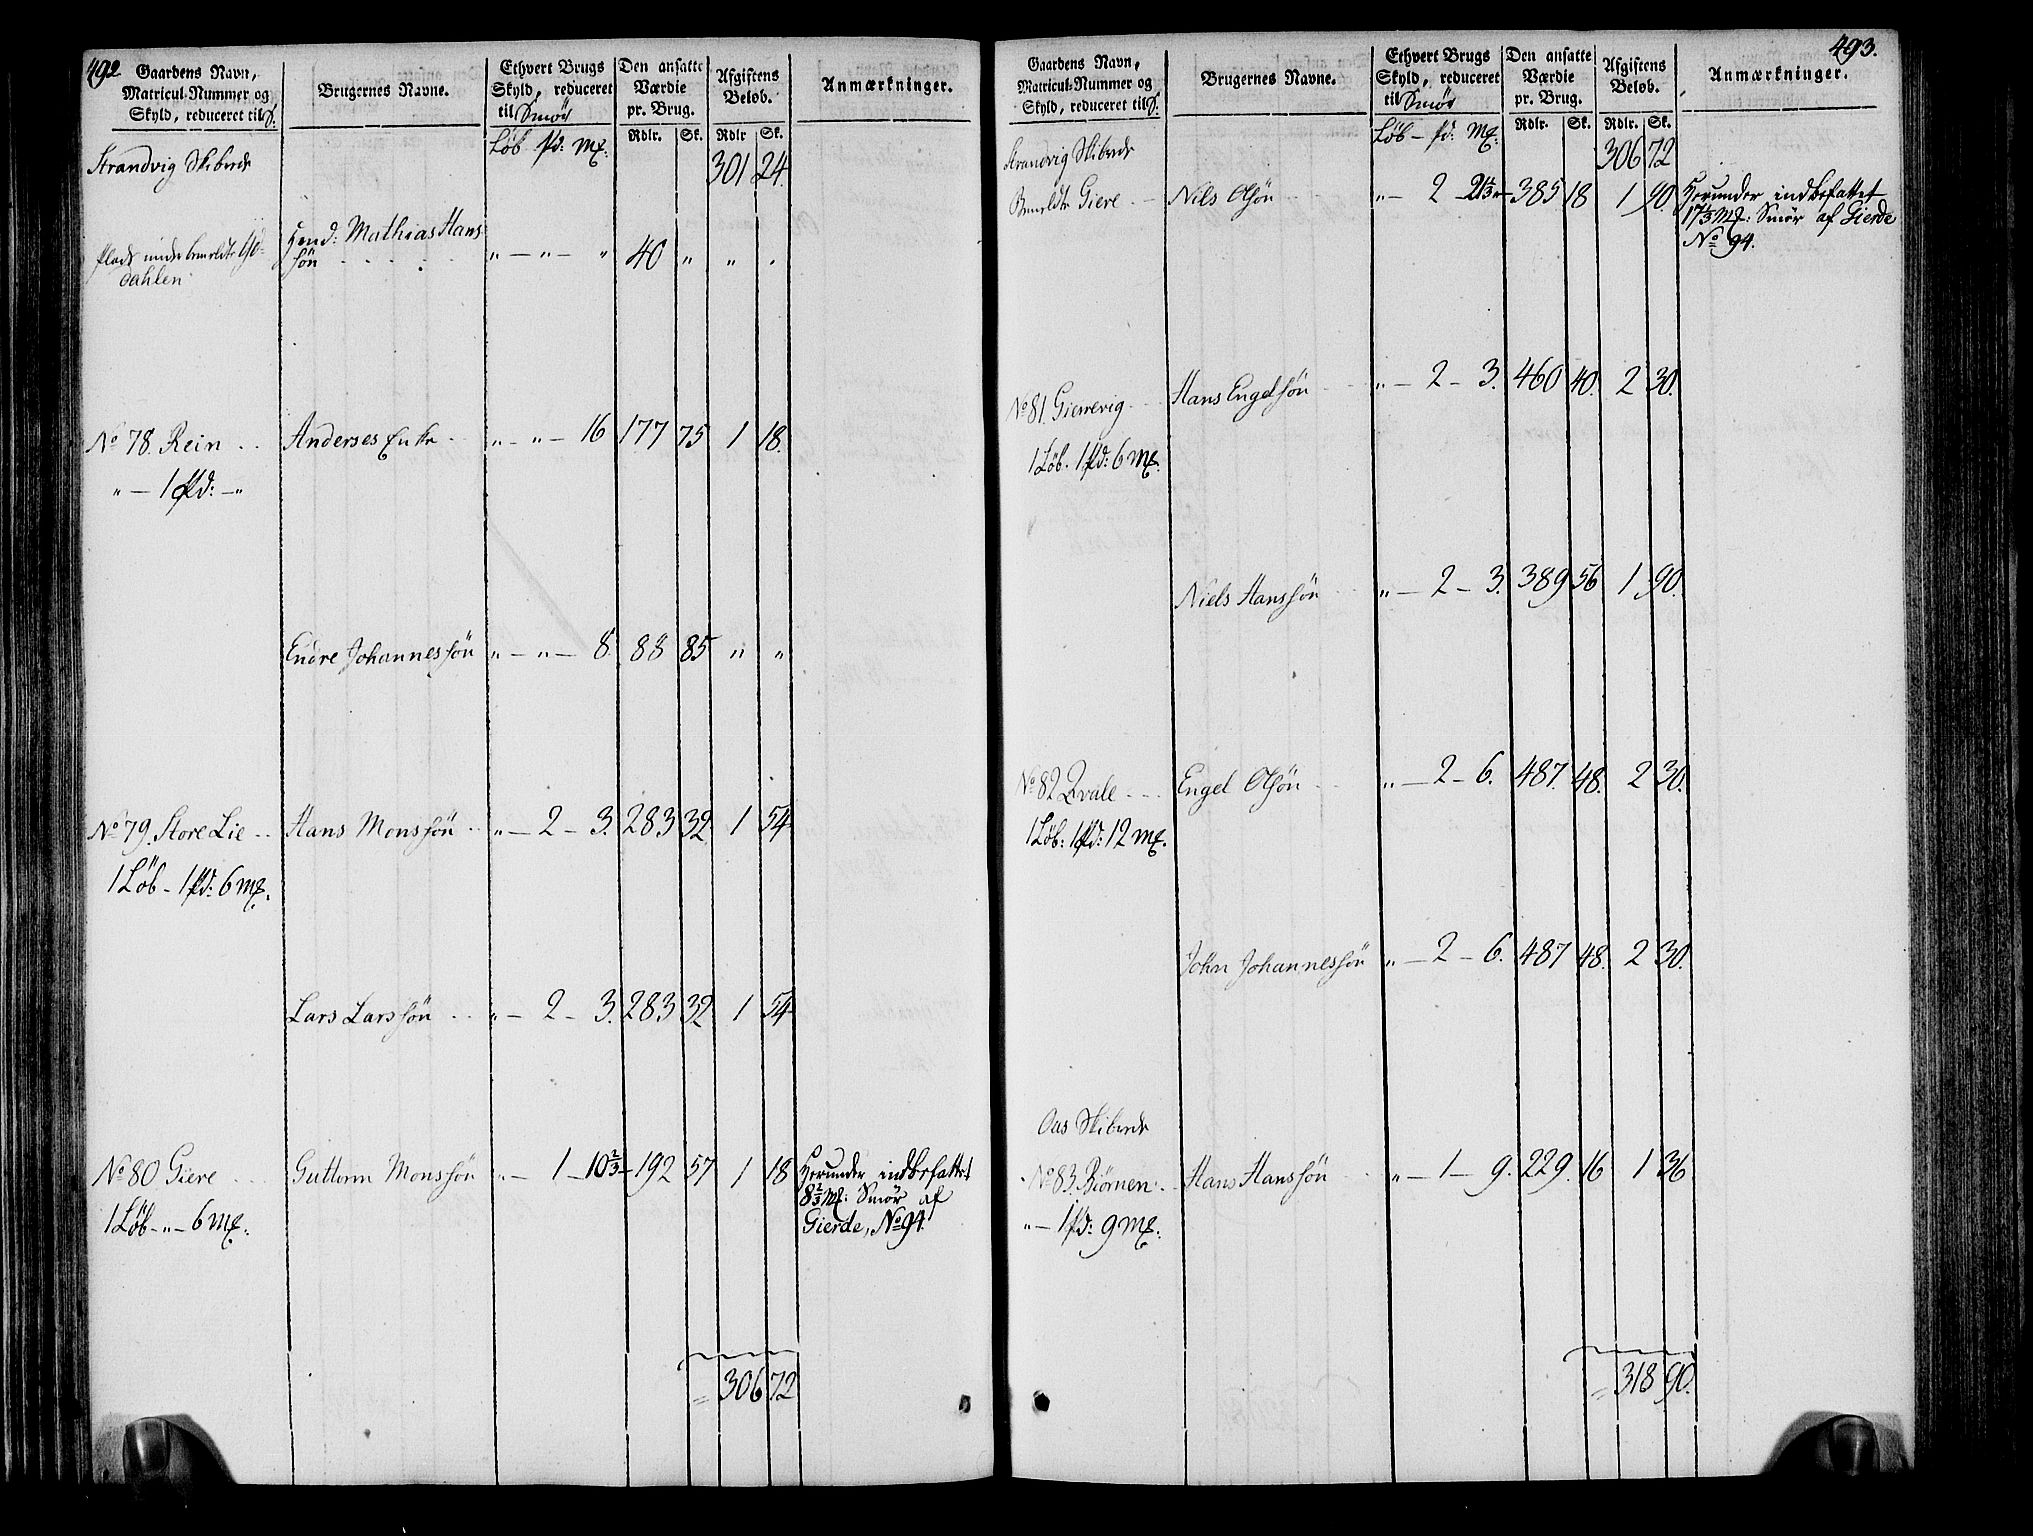 492
Gaardens Navn,
Matricul-Nummer og
Skyld, reduceret til S.
Brugernes Navne.
Ethvert Brugs
Skyld, reduceret
til Smör
Den ansatte
Værdie
pr. Brug.
Afgiftens
Beløb.
Anmærkninger.
Löb pd: mk:
Rdlr. Sk. Rdlr Sk.
Strandvig Skibrede 301 24.
Plads under bemeldte
dahlen
Hend: Mathias Hans
sön „ — „ — „ 40 „ „ „
No 78. Rein Anderses Enke „ — „ — 16 177 75 1 18.
„ — 1 pd: — „
Endre Johannessön „ — „ — 8. 88 85 „ „
No 79. Store Lie Hans Monssön „ — 2 — 3. 283 32 1 54
1 Löb — 1 pd: 6 mk.
Lars Larssön „ — 2 — 3. 283 32 1 54
No 80 Giere Guttorm Monssön „ — 1 — 10 2/3 — 192 57 1 18
1 Löb — „ — 6 mk.
Herunder indbefattet
8 2/3 mk: Smör af
Gierde, No 94.
306 72
493.
Gaardens Navn,
Matricul-Nummer og
Skyld, reduceret til S.
Brugernes Navne.
Ethvert Brugs
Skyld, reduceret
til Smör
Den ansatte
Værdie
pr. Brug.
Afgiftens
Beløb.
Anmærkninger.
Löb — pd: mk:
Rdlr. Sk. Rdlr. Sk.
Strandvig Skibrede 306 72
Bemeldte Giere Nils Olsön „ — 2 — 21 1/3 — 385 18 1 90.
Herunder indbefattet
17 1/3 mk: Smör af Gierde
No 94.
No 81. Gierrevig Hans Engelsön „ — 2 — 3. 460 40. 2 30.
1 Löb. 1 pd: 6 mk.
Niels Hanssön „ — 2 — 3. 389 56 1 90.
No 82 Qvale Engel Olsön „ — 2 — 6. 487. 48. 2 30.
1 Löb: 1 pd: 12 mk.
John Johannessön „ — 2 — 6. 487 48. 2 30.
Oas Skibrede
No 83. Biörnen Hans Hanssön „ — 1 — 9. 229. 16 1 36
„ — 1 pd: 9 mk.
318 90.